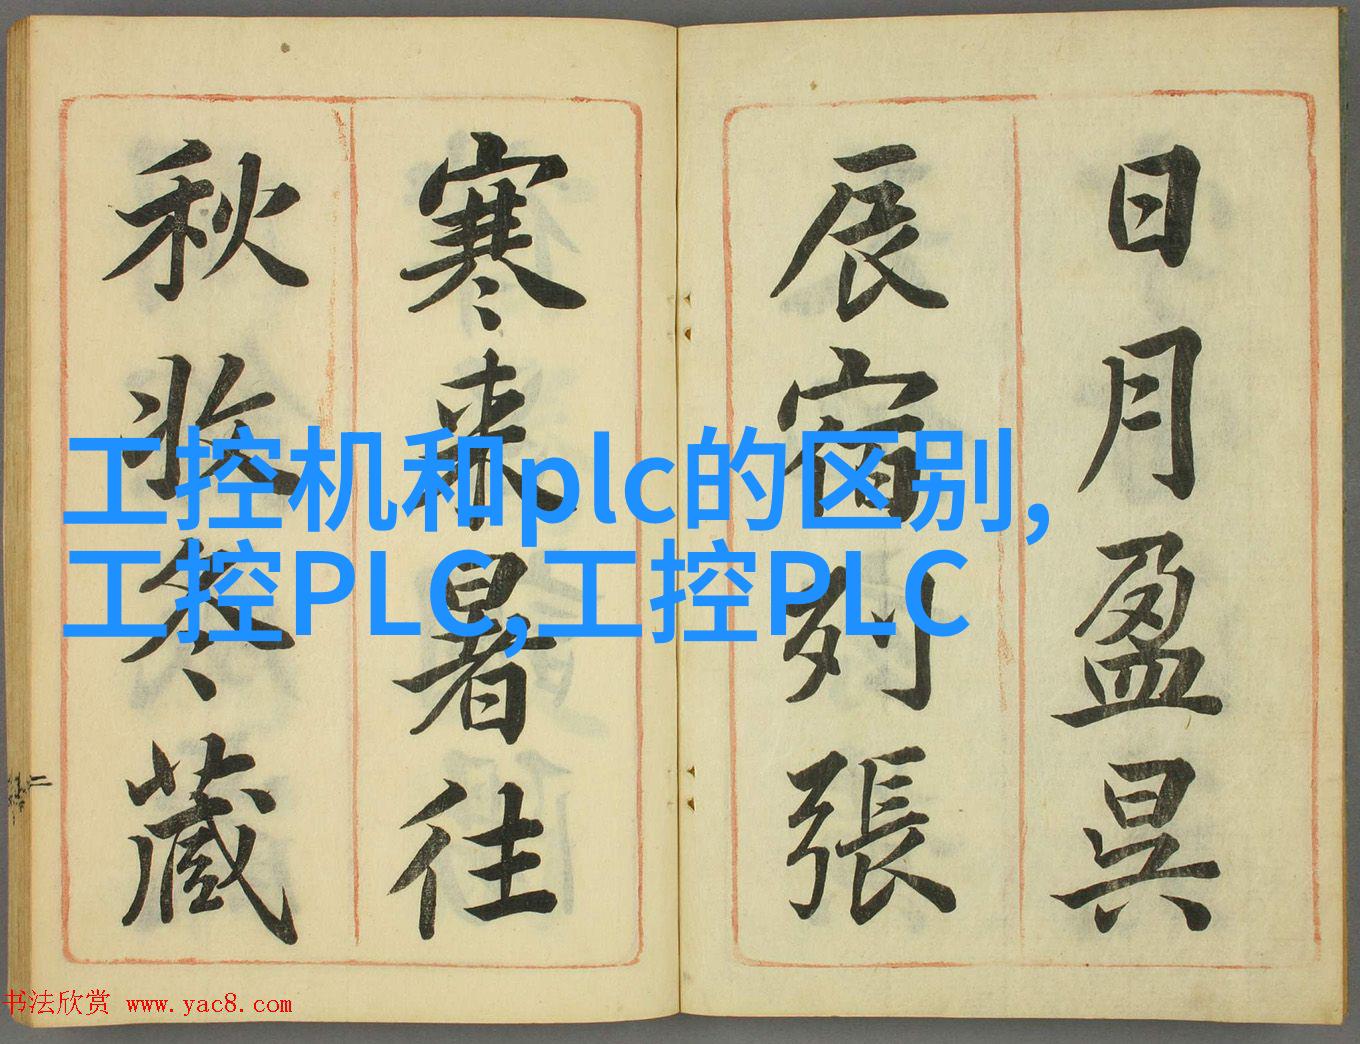 日月盈昃
辰宿列張
寒来暑往
秋收冬藏
工控机和plc的区别,
工控PLC,工控PLC
书法欣赏 www.yac8.com